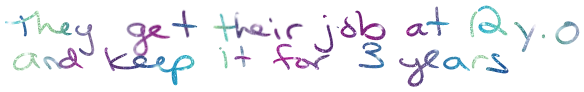 They get their job at 2 y.o
and keep it for 3 years